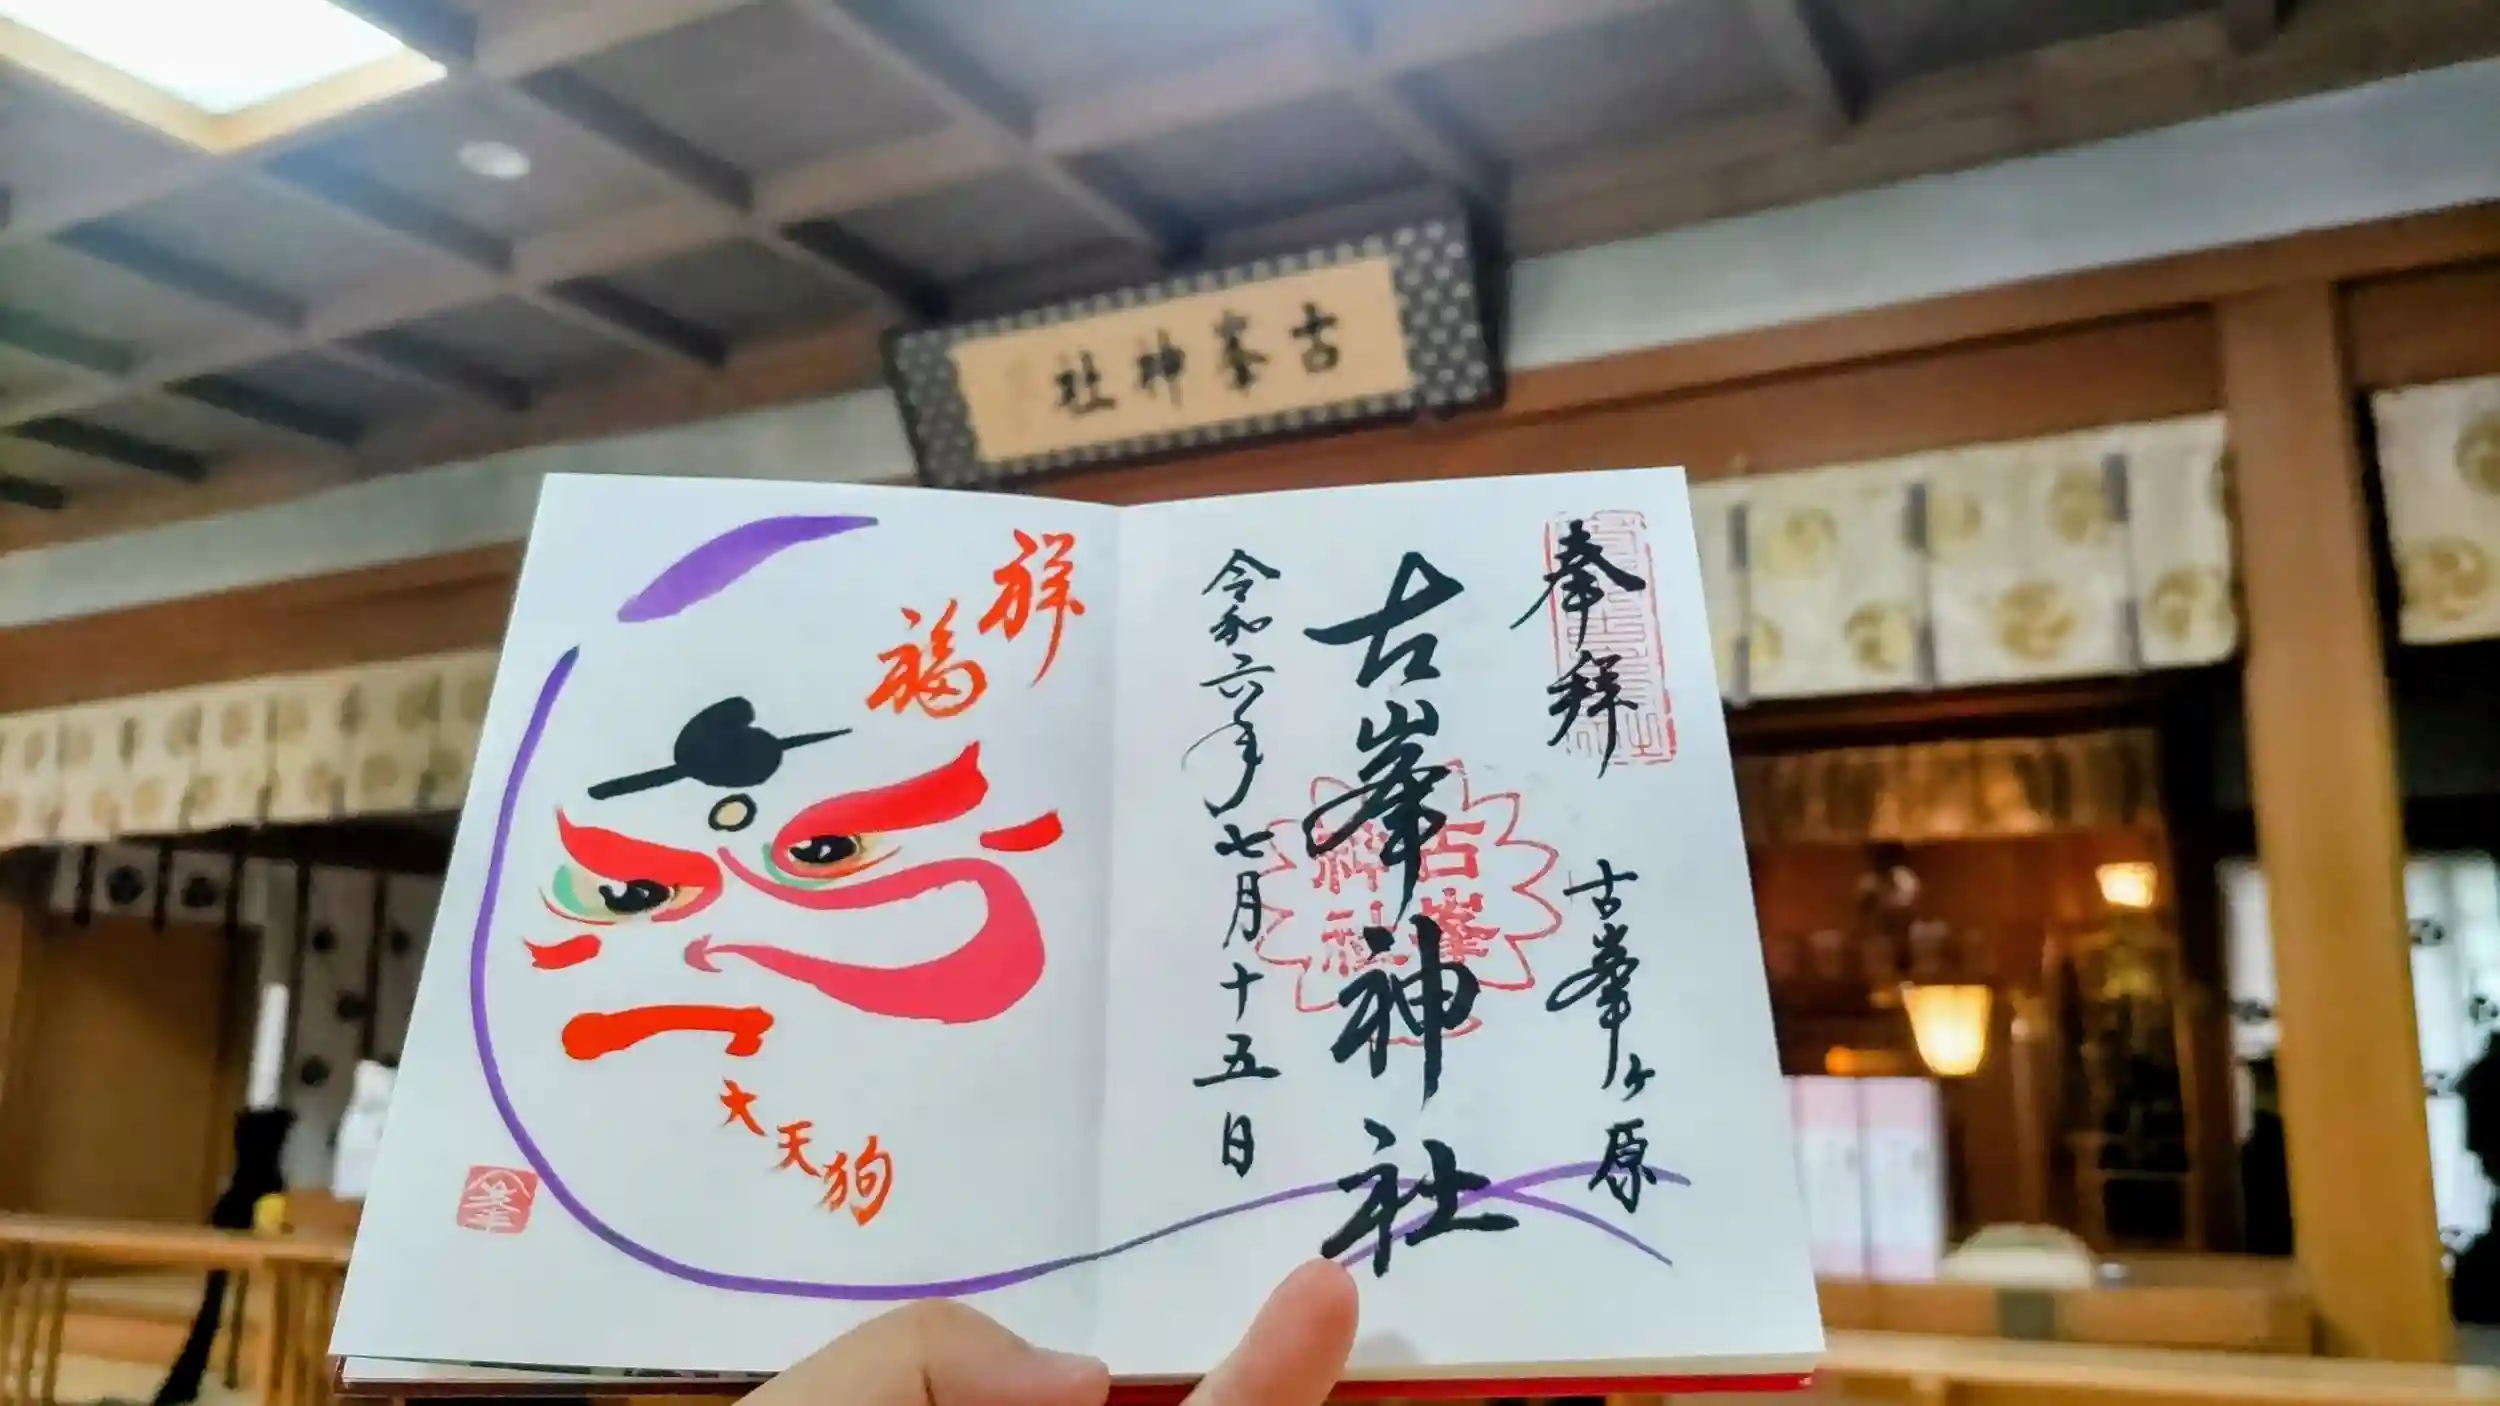 古峯神社
奉拝
古峯ヶ原
古峯神社
古峯
神社
令和六年七月十五日
祥
福
大天狗
峯